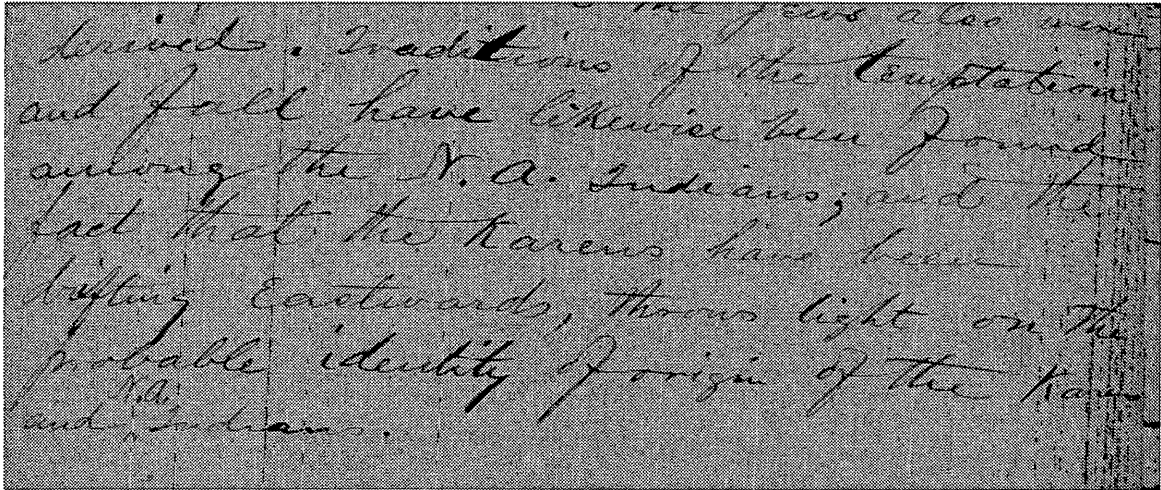 the Jews also were
derived. Traditions of the temptation
and fall have likewise been found
among the N. A. Indians; and the
fact that the Karens have been
drifting Eastwards, throws light on the
probable identity of origin of the Karens
N.A.
and Indians.